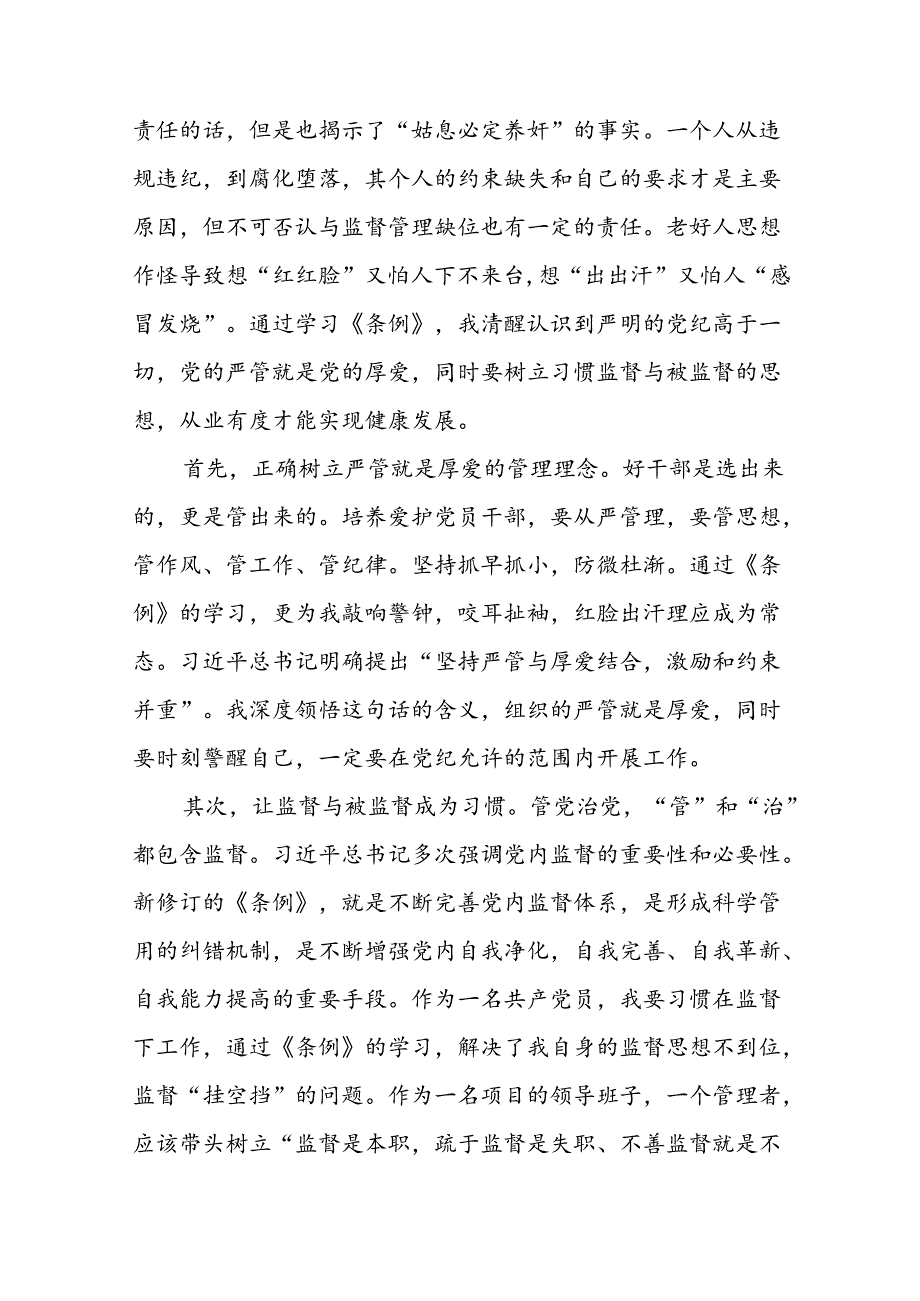 责任的话，但是也揭示了“姑息必定养奸”的事实。一个人从违
规违纪，到腐化堕落，其个人的约束缺失和自己的要求才是主要
原因，但不可否认与监督管理缺位也有一定的责任。老好人思想
作怪导致想“红红脸”又怕人下不来台,想“出出汗”又怕人“感
冒发烧”。通过学习《条例》，我清醒认识到严明的党纪高于一
切，党的严管就是党的厚爱，同时要树立习惯监督与被监督的思
想，从业有度才能实现健康发展。
首先，正确树立严管就是厚爱的管理理念。好干部是选出来
的，更是管出来的。培养爱护党员干部，要从严管理，要管思想，
管作风、管工作、管纪律。坚持抓早抓小，防微杜渐。通过《条
例》的学习，更为我敲响警钟，咬耳扯袖，红脸出汗理应成为常
态。习近平总书记明确提出“坚持严管与厚爱结合，激励和约束
并重”。我深度领悟这句话的含义，组织的严管就是厚爱，同时
要时刻警醒自己，一定要在党纪允许的范围内开展工作。
其次，让监督与被监督成为习惯。管党治党，“管”和“治”
都包含监督。习近平总书记多次强调党内监督的重要性和必要性。
新修订的《条例》，就是不断完善党内监督体系，是形成科学管
用的纠错机制，是不断增强党内自我净化，自我完善、自我革新、
自我能力提高的重要手段。作为一名共产党员，我要习惯在监督
下工作，通过《条例》的学习，解决了我自身的监督思想不到位，
监督“挂空挡”的问题。作为一名项目的领导班子，一个管理者，
应该带头树立“监督是本职，疏于监督是失职、不善监督就是不